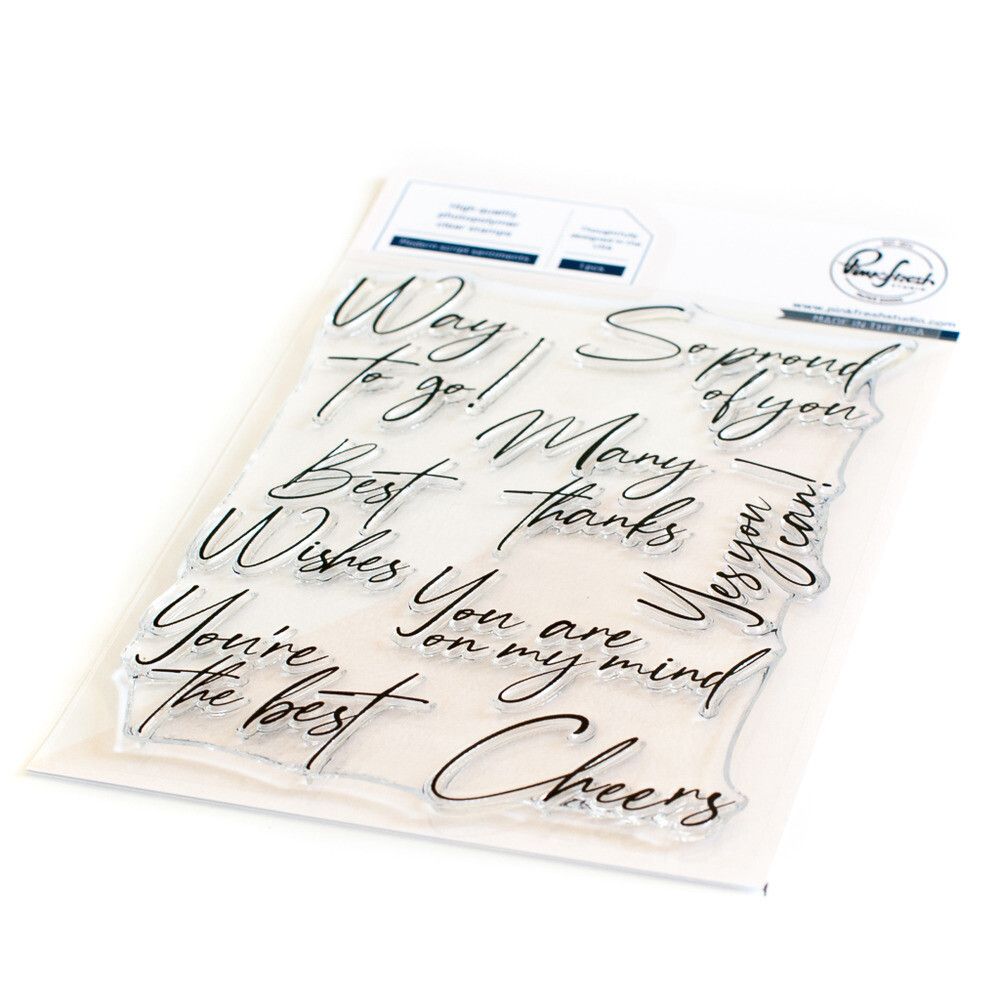 High-quality
photopolymer
clear stamps
Modern script sentiments
Thoughtfully
designed in the
USA
Pinkfresh
STUDIO
www.pinkfreshstudio.com
MADE IN THE USA
Way
to go!
So proud
of you
Many
thanks
Best
Wishes
Yes you
can!
You are
on my mind
You're
the best
Cheers